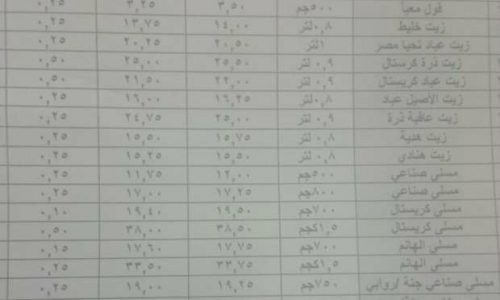 فول معبأ ٥٠٠جم ٣,٥٠ ٣,٢٥ ٠,٢٥
زيت خليط ٠,٨لتر ١٤,٠٠ ١٣,٧٥ ٠,٢٥
زيت عباد تحيا مصر ١لتر ٢٠,٥٠ ٢٠,٢٥ ٠,٢٥
زيت ذرة كرستال ٠,٩ لتر ٢٥,٥٠ ٢٥,٠٠ ٠,٥٠
زيت عباد كريستال ٠,٩ لتر ٢٢,٠٠ ٢١,٥٠ ٠,٥٠
زيت الأصيل عباد ٠,٨ لتر ١٦,٢٥ ١٦,٠٠ ٠,٢٥
زيت عافية ذرة ٠,٩ لتر ٢٥,٠٠ ٢٤,٧٥ ٠,٢٥
زيت هدية ٠,٨ لتر ١٥,٧٥ ١٥,٥٠ ٠,٢٥
زيت هنادي ٠,٨ لتر ١٥,٥٠ ١٥,٢٥ ٠,٢٥
مسلى صناعي ٥٠٠جم ١٢,٠٠ ١١,٧٥ ٠,٢٥
مسلى صناعي ٨٠٠جم ١٧,٢٥ ١٧,٠٠ ٠,٢٥
مسلى كريستال ٧٠٠جم ١٩,٥٠ ١٩,٤٠ ٠,١٠
مسلى كريستال ١,٥كجم ٣٨,٥٠ ٣٨,٠٠ ٠,٥٠
مسلى الهانم ٧٠٠جم ١٧,٧٥ ١٧,٦٠ ٠,١٥
مسلى الهانم ١,٥كجم ٣٣,٧٥ ٣٣,٥٠ ٠,٢٥
مسلى صناعي جنة /روابي ٧٥٠جم ١٩,٢٥ ١٩,٠٠ ٠,٢٥